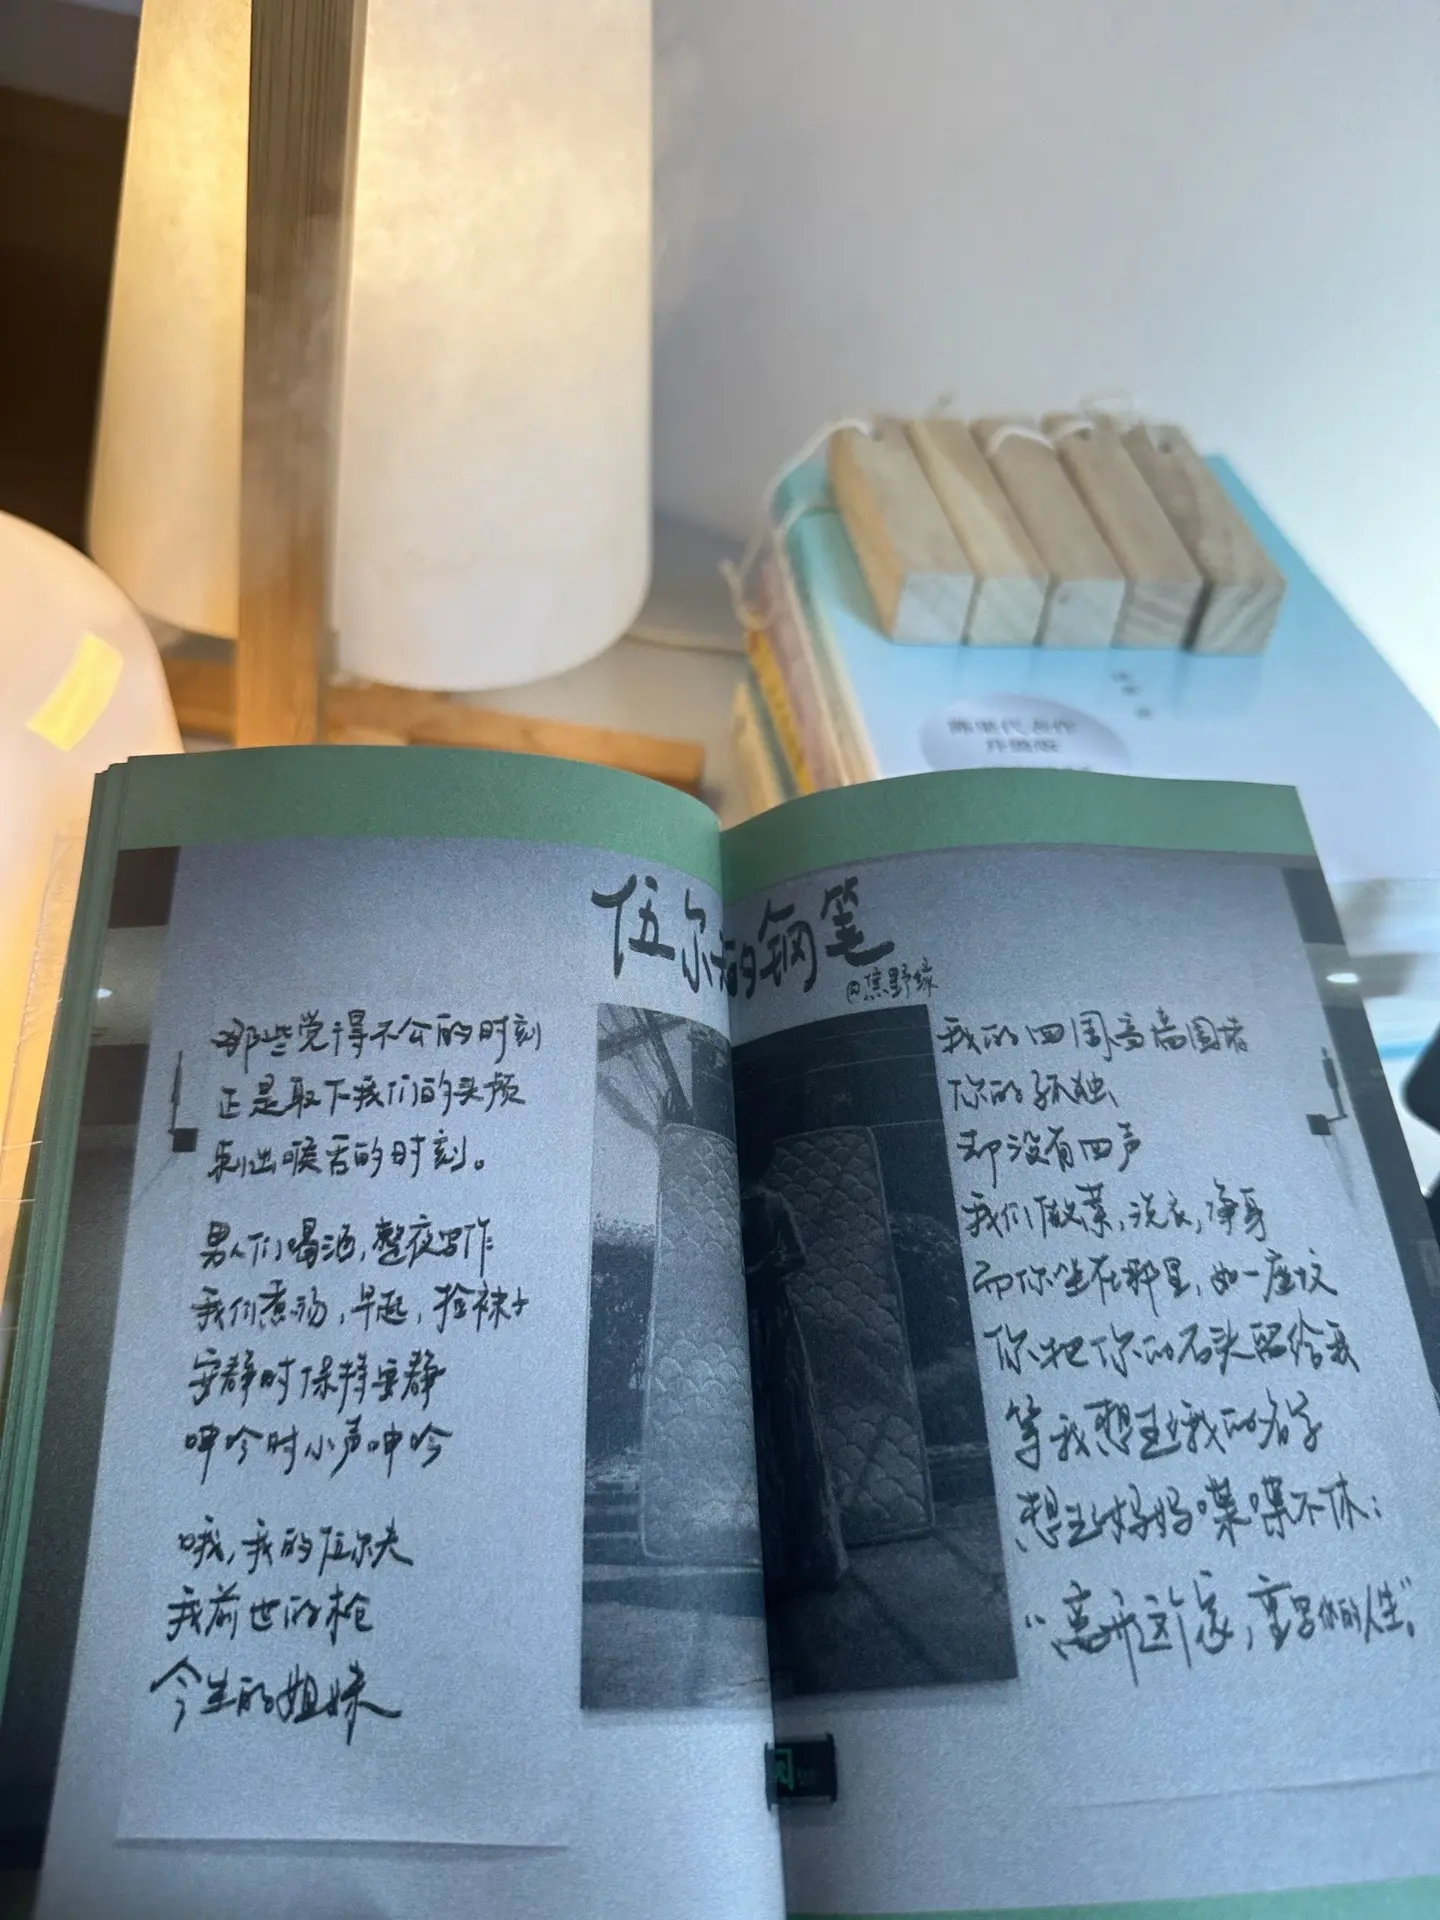 伍尔夫的钢笔
@焦野绿
那些觉得不公的时刻
正是取下我们的头颅
剩出喉舌的时刻。
男人们喝酒，整夜写作
我们煮汤，早起，捡袜子
安静时保持安静
呻吟时小声呻吟
哦，我的伍尔夫
我前世的枪
今生的姐妹
我的四周高墙围着
你的孤独
却没有四声
我们做菜，洗衣，净身
而你坐在那里，如一座坟
你把你的石头留给我
等我想出我的名字
想出妈妈喋喋不休：
“离开这个家，重写你的人生”。